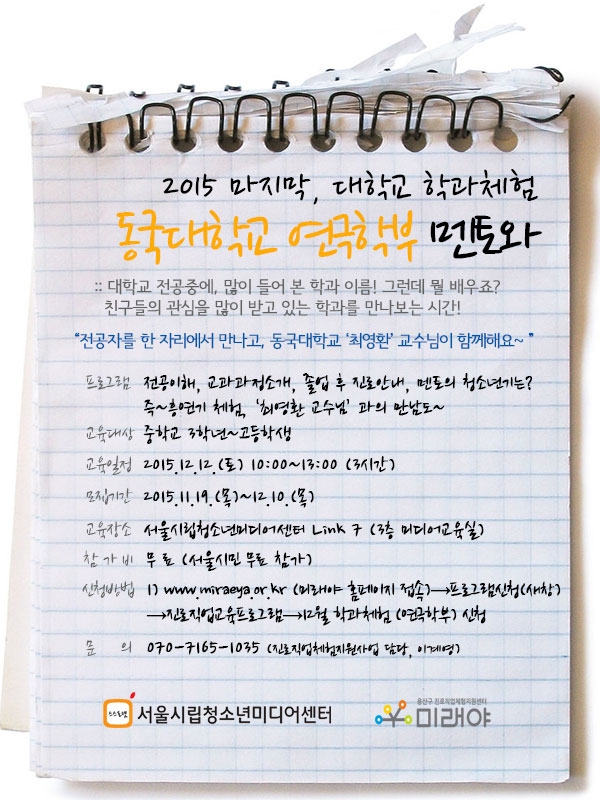 2015 마지막, 대학교 학과체험
동국대학교 연극학부 멘토와
:: 대학교 전공중에, 많이 들어 본 학과 이름! 그런데 뭘 배우죠?
친구들의 관심을 많이 받고 있는 학과를 만나보는 시간!
“전공자를 한 자리에서 만나고, 동국대학교 ‘최영환’ 교수님이 함께해요~ ”
프로그램 전공이해, 교과과정소개, 졸업 후 진로안내, 멘토의 청소년기는?
즉~흥연기 체험, ‘최영환 교수님’ 과의 만남도~
교육대상 중학교 3학년~고등학생
교육일정 2015.12.12.(토) 10:00~13:00 (3시간)
모집기간 2015.11.19.(목)~12.10.(목)
교육장소 서울시립청소년미디어센터 Link 7 (3층 미디어교육실)
참 가 비 무료 (서울시민 무료 참가)
신청방법 1) www.miraeya.or.kr (미래야 홈페이지 접속)→프로그램신청(새창)
→진로직업교육프로그램→12월 학과체험 (연극학부) 신청
문 의 070-7165-1035 (진로직업체험지원사업 담당, 이계영)
스스로넷 서울시립청소년미디어센터
용산구 진로직업체험지원센터
미래야